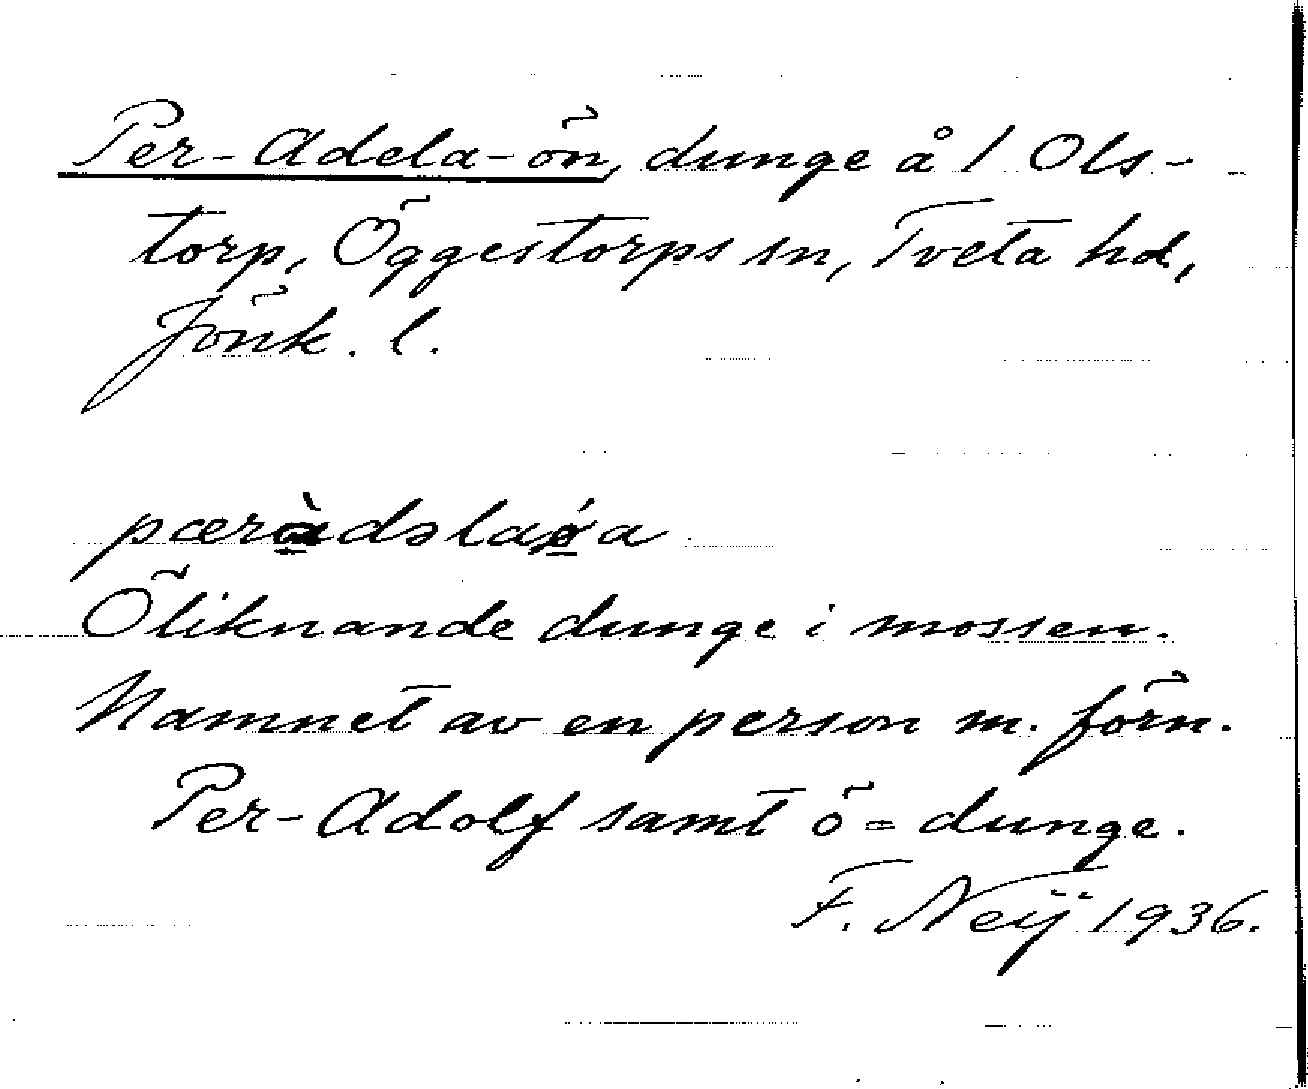 Per-Adela-ön, dunge å 1 Ols-
torp, Öggestorps sn, Tveta hd,
Jönk. l.
Öliknande dunge i mossen.
Namnet av en person m. förn.
Per-Adolf samt ö = dunge.
F. Neij 1936.